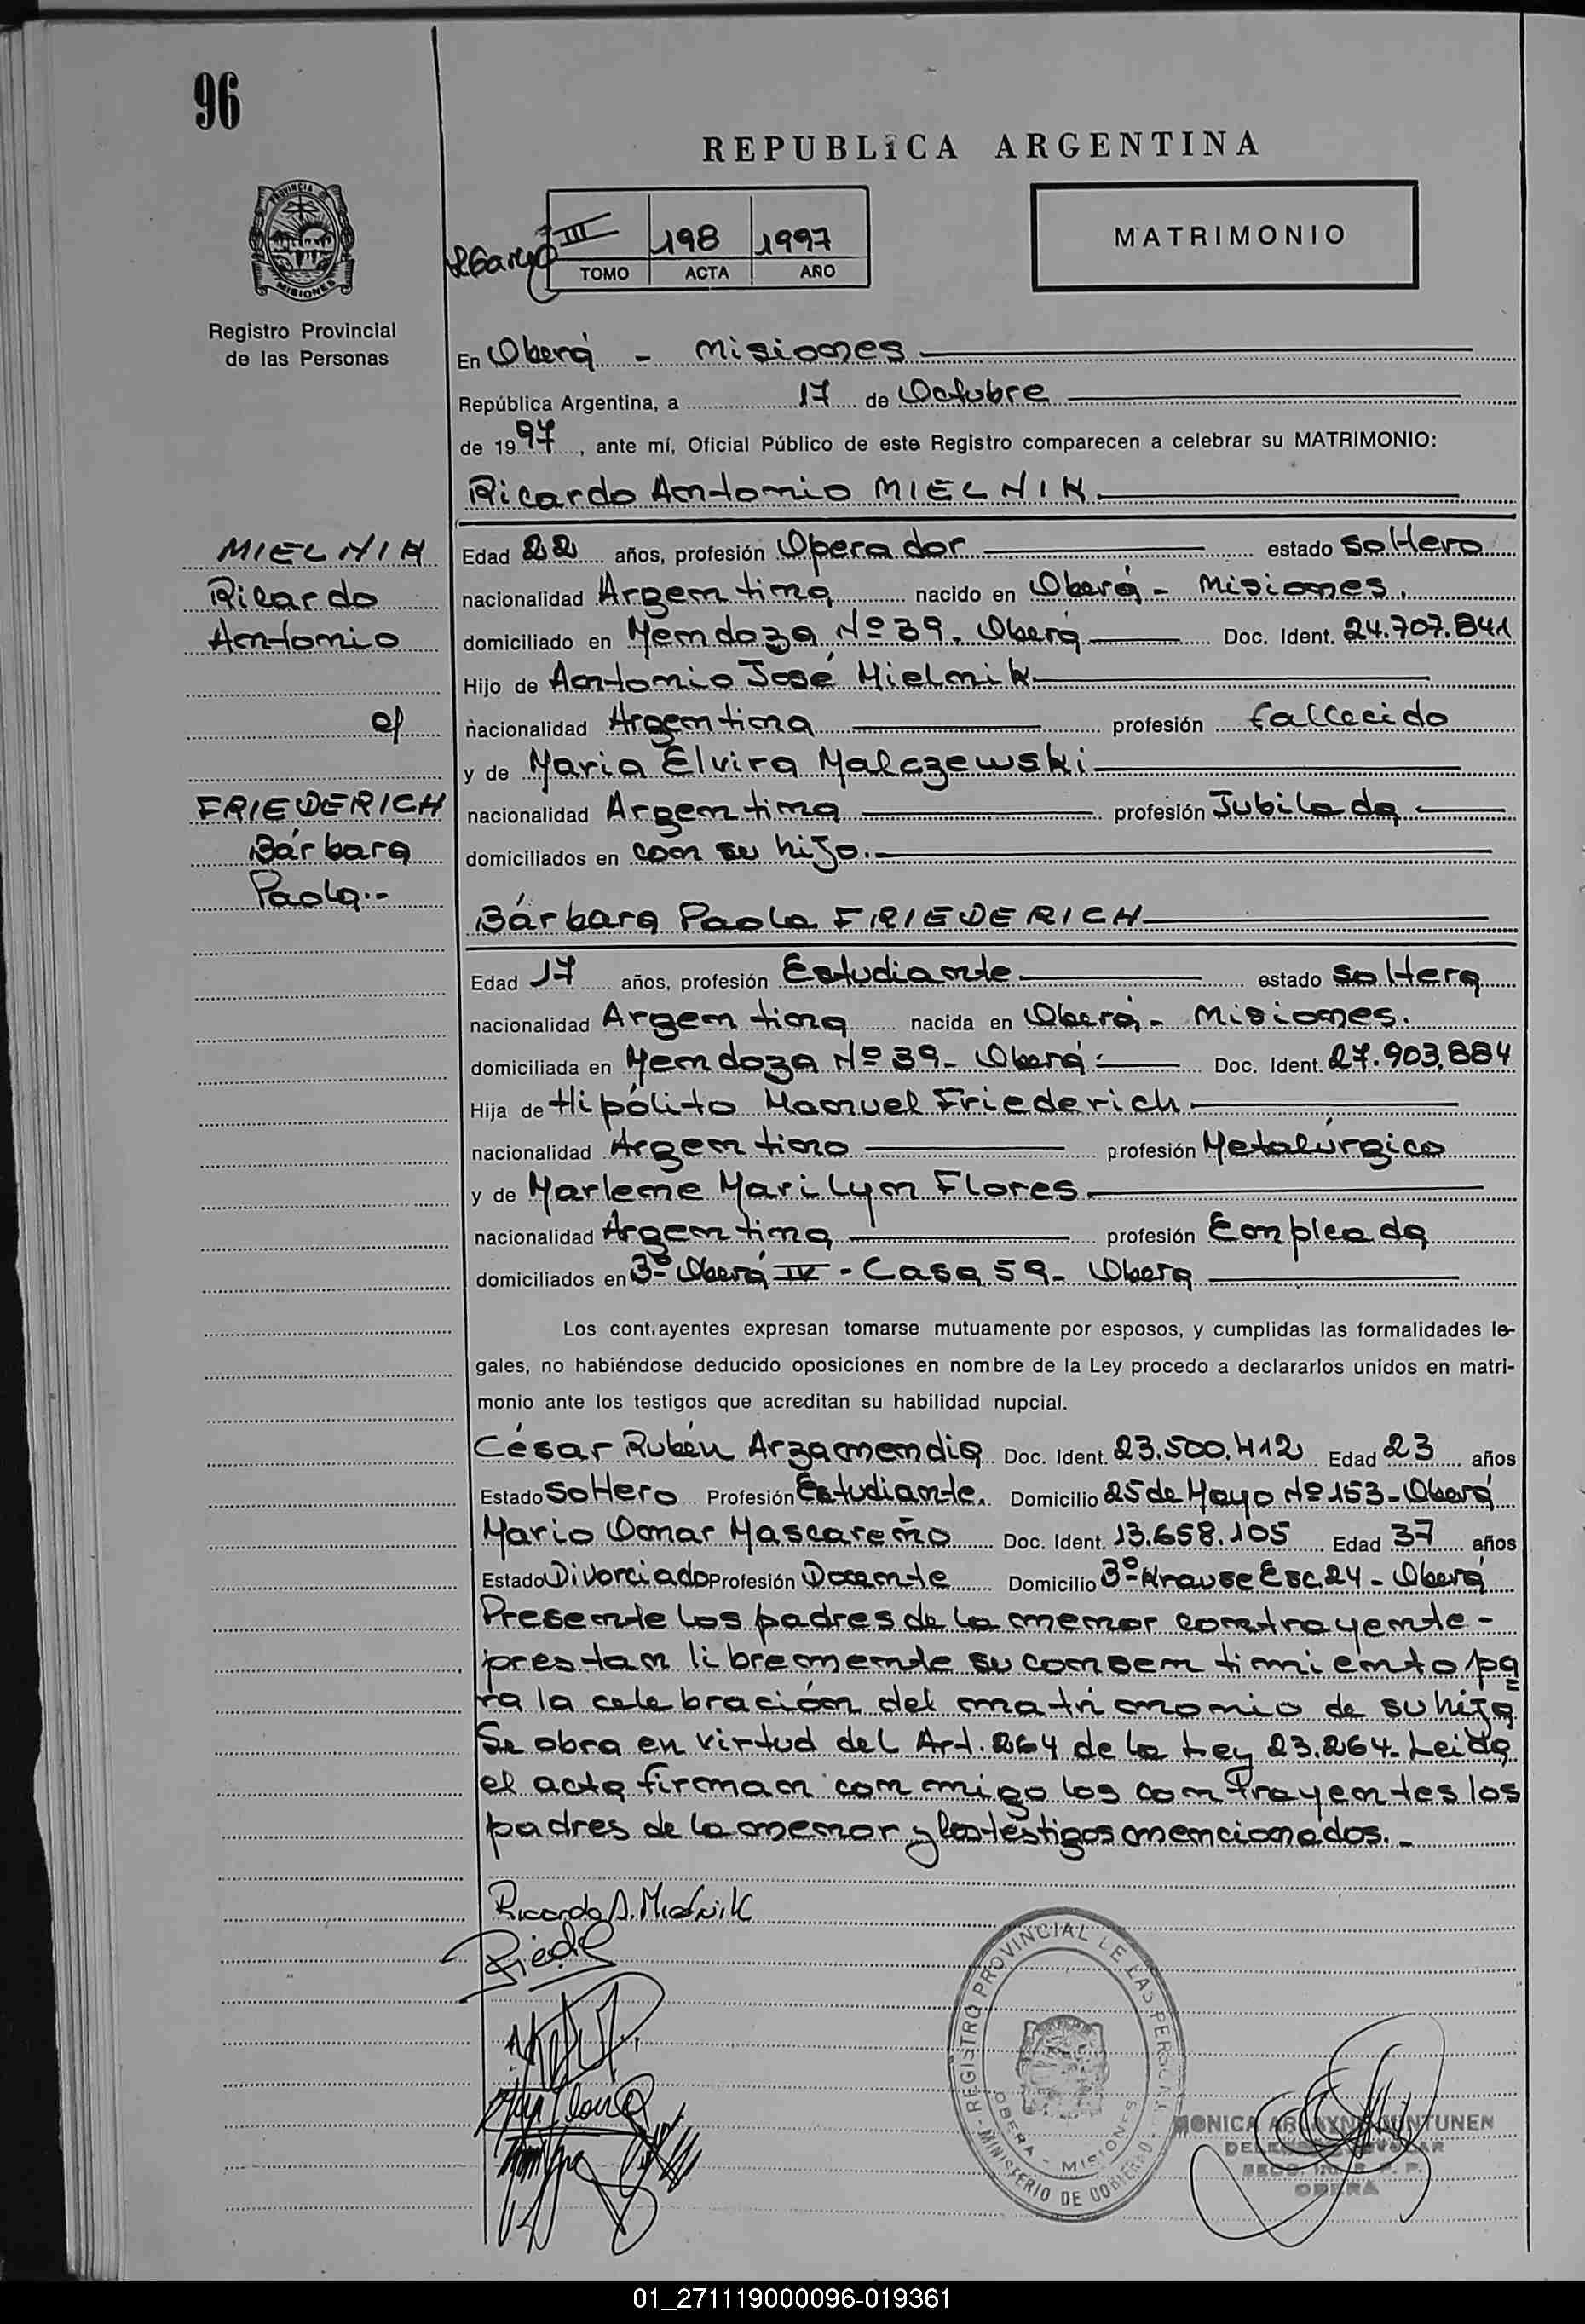 96
REPUBLICA ARGENTINA
PROVINCIA DE
MISIONES
III 198 1997
TOMO ACTA AÑO
MATRIMONIO
Registro Provincial
de las Personas
En Oberá - Misiones
República Argentina, a 17 de Octubre
de 1997, ante mí, Oficial Público de este Registro comparecen a celebrar su MATRIMONIO:
Ricardo Antonio MIELNIK
MIELNIK
Ricardo
Antonio
c/
FRIEDERICH
Bárbara
Paola.-
Edad 22 años, profesión Operador estado soltero
nacionalidad Argentina nacido en Oberá - Misiones.
domiciliado en Mendoza Nº 39. Oberá Doc. Ident. 24.707.841
Hijo de Antonio José Mielnik
nacionalidad Argentina profesión fallecido
y de Maria Elvira Malczewski
nacionalidad Argentina profesión Jubilada
domiciliados en con su hijo.
Bárbara Paola FRIEDERICH
Edad 17 años, profesión Estudiante estado soltera
nacionalidad Argentina nacida en Oberá - Misiones.
domiciliada en Mendoza Nº 39 - Oberá Doc. Ident. 27.903.884
Hija de Hipólito Manuel Friederich
nacionalidad Argentino profesión Metalúrgico
y de Marlene Marilyn Flores
nacionalidad Argentina profesión Empleada
domiciliados en Bº Oberá IV - Casa 59 - Oberá
Los contrayentes expresan tomarse mutuamente por esposos, y cumplidas las formalidades le-
gales, no habiéndose deducido oposiciones en nombre de la Ley procedo a declararlos unidos en matri-
monio ante los testigos que acreditan su habilidad nupcial.
César Rubén Arzamendia Doc. Ident. 23.500.412 Edad 23 años
Estado Soltero Profesión Estudiante. Domicilio 25 de Mayo Nº 153 - Oberá
Mario Omar Mascareño Doc. Ident. 13.658.105 Edad 37 años
Estado Divorciado Profesión Docente Domicilio Bº Krause Esc. 24 - Oberá
Presente los padres de la menor contrayente -
prestan libremente su consentimiento pa
ra la celebración del matrimonio de su hija
Se obra en virtud del Art. 264 de la Ley 23.264. Leida
el acta firman conmigo los contrayentes los
padres de la menor y los testigos mencionados.-
Ricardo A. Mielnik
REGISTRO PROVINCIAL DE LAS PERSONAS
OBERA - MISIONES
MINISTERIO DE GOBIERNO
MONICA JUNTUNEN
OBERA
01_271119000096-019361